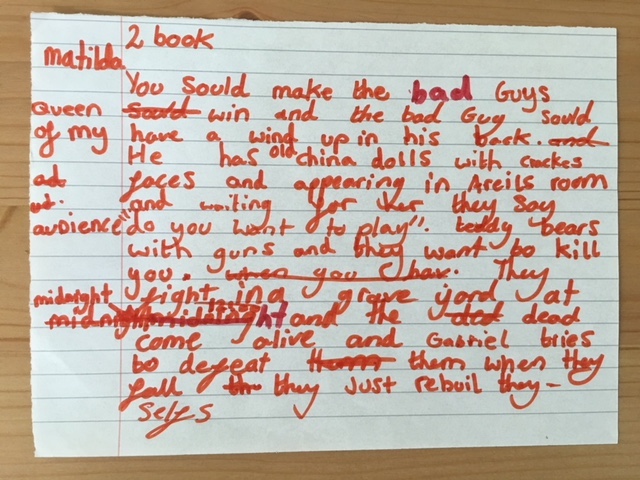 2 book
matilda
You Sould make the bad Guys
queen Sould win and the bad Guy sould
of my have a wind up in his back. and
He has old china dolls with crackes
ad faces and appearing in Areils room
ut. and waiting for her they say
audience "do you want to play". teddy bears
with guns and they want to kill
you. when you hav. They
midnight fight in a grave yord at
midnight and the dead
come alive and Gabriel tries
to defeat them when they
fall th they just rebuil they-
selfs